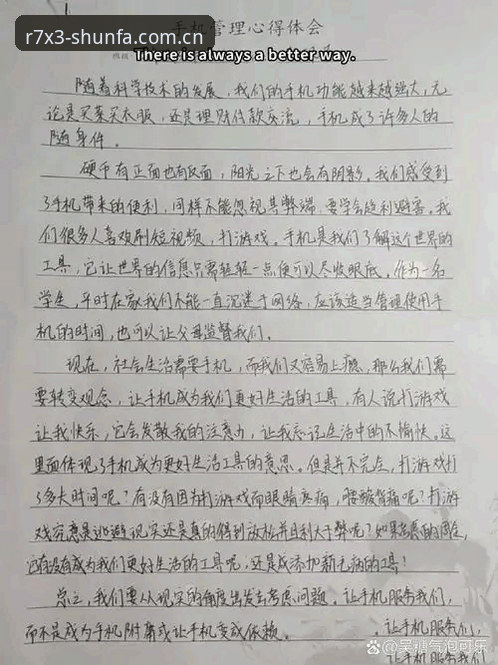 r7x3-shunfa.com.cn
手机管理心得体会
There is always a better way.
随着科学技术的发展，我们的手机功能越来越强大，无
论是买菜买衣服，还是理财付款交流，手机成了许多人的
随身件。
硬币有正面也有反面，阳光之下也会有阴影。我们感受到
了手机带来的便利，同样不能忽视其弊端，要学会趋利避害。我
们很多人喜欢刷短视频，打游戏。手机是我们了解这个世界的
工具，它让世界的信息只需轻轻一点便可以尽收眼底。作为一名
学生，平时在家我们不能一直沉迷于网络，应该适当管理使用手
机的时间，也可以让父母监督我们。
现在，社会生活需要手机，而我们又容易上瘾，那么我们需
要转变观念，让手机成为我们更好生活的工具，有人说打游戏
让我快乐，它会发散我的注意力，让我忘记生活中的不愉快。这
里面体现了手机成为更好生活工具的意思。但是并不完全，打游戏打
了多长时间呢？有没有因为打游戏而眼睛疼痛，腰酸背痛呢？打游
戏究竟是逃避现实还是真的得到放松并且利大于弊呢？如果考虑的周全，
还有没有成为我们更好生活的工具呢，还是成添加新毛病的工具！
总之，我们要从现实的角度出发去考虑问题。让手机服务我们，
而不是成为手机附庸或让手机变成依赖。
让手机服务们，
让手机服务我们
@吴 气泡可乐